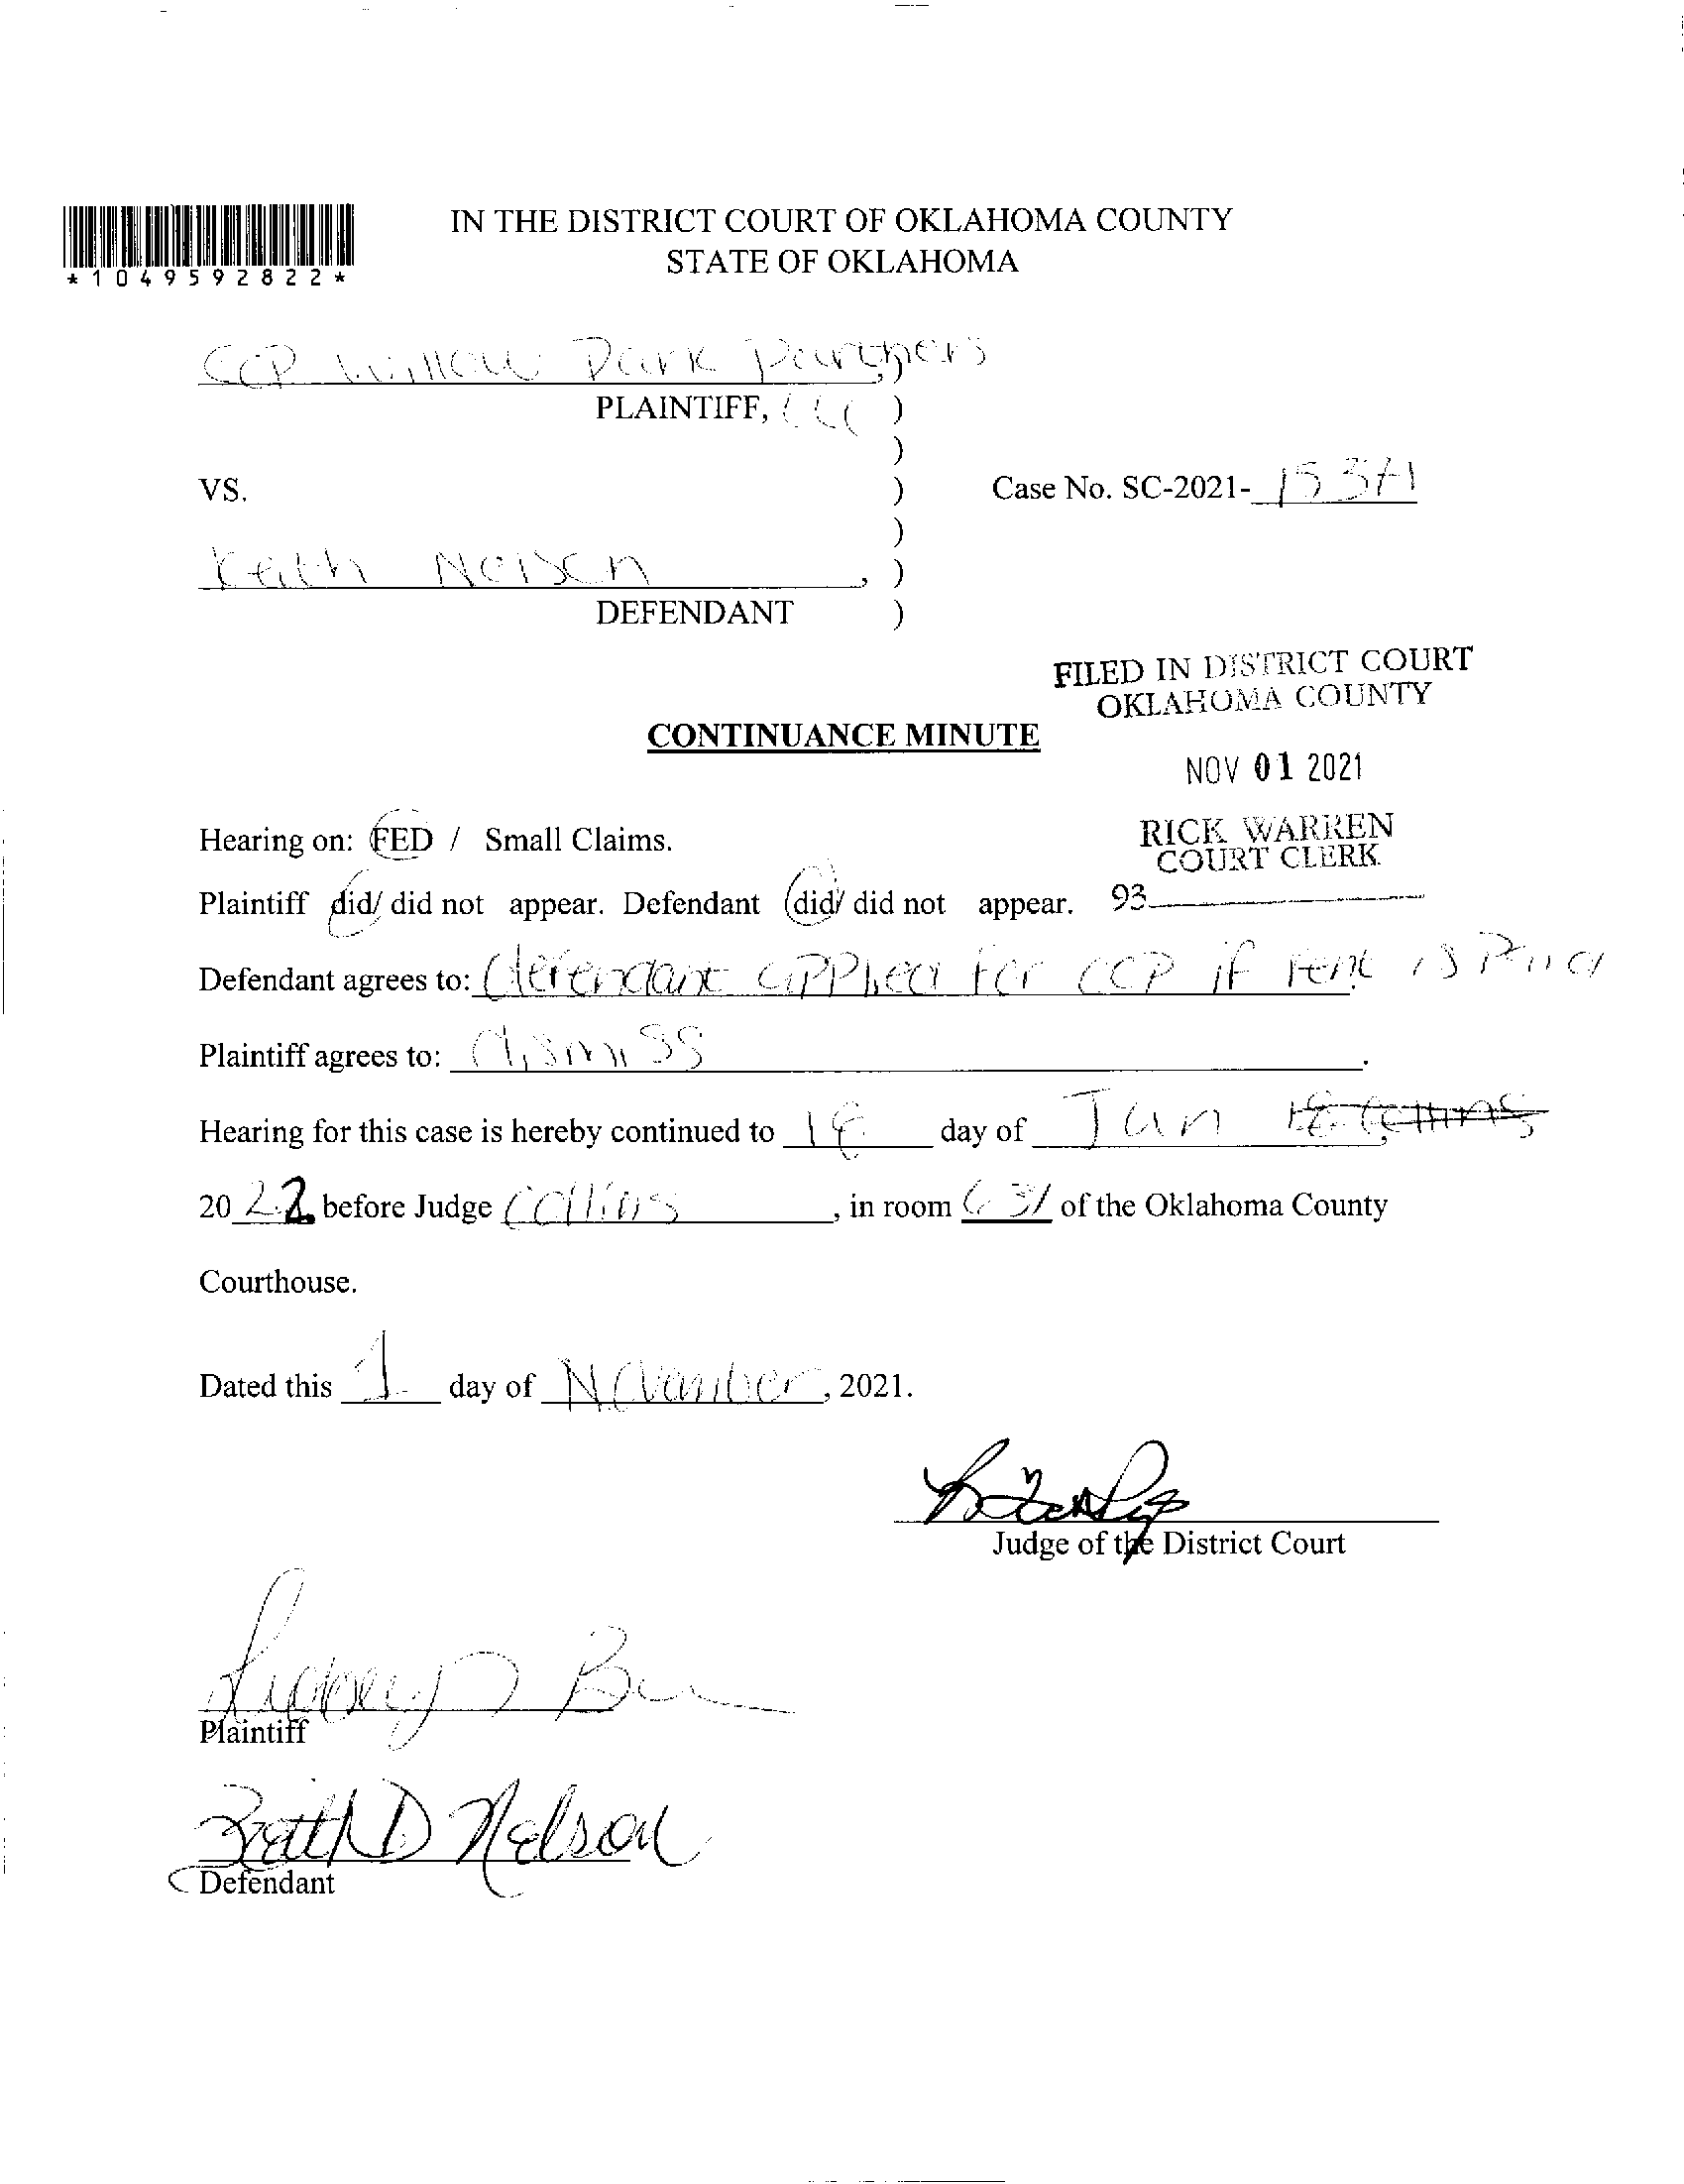 *1049592822*
IN THE DISTRICT COURT OF OKLAHOMA COUNTY
STATE OF OKLAHOMA
CCP Willow Park Partners
PLAINTIFF, LLC )
)
VS. ) Case No. SC-2021-
)
Keith Nelson, )
DEFENDANT )
FILED IN DISTRICT COURT
OKLAHOMA COUNTY
CONTINUANCE MINUTE
NOV 01 2021
Hearing on: FED / Small Claims.
RICK WARREN
COURT CLERK
Plaintiff did/ did not appear. Defendant did/ did not appear. 93
Defendant agrees to: defendant applied for CCP if rent is Paid.
Plaintiff agrees to: dismiss.
Hearing for this case is hereby continued to 18 day of Jan,
2022 before Judge Collins, in room 631 of the Oklahoma County
Courthouse.
Dated this 1 day of November, 2021.
Judge of the District Court
Plaintiff
Keith D Nelson
Defendant